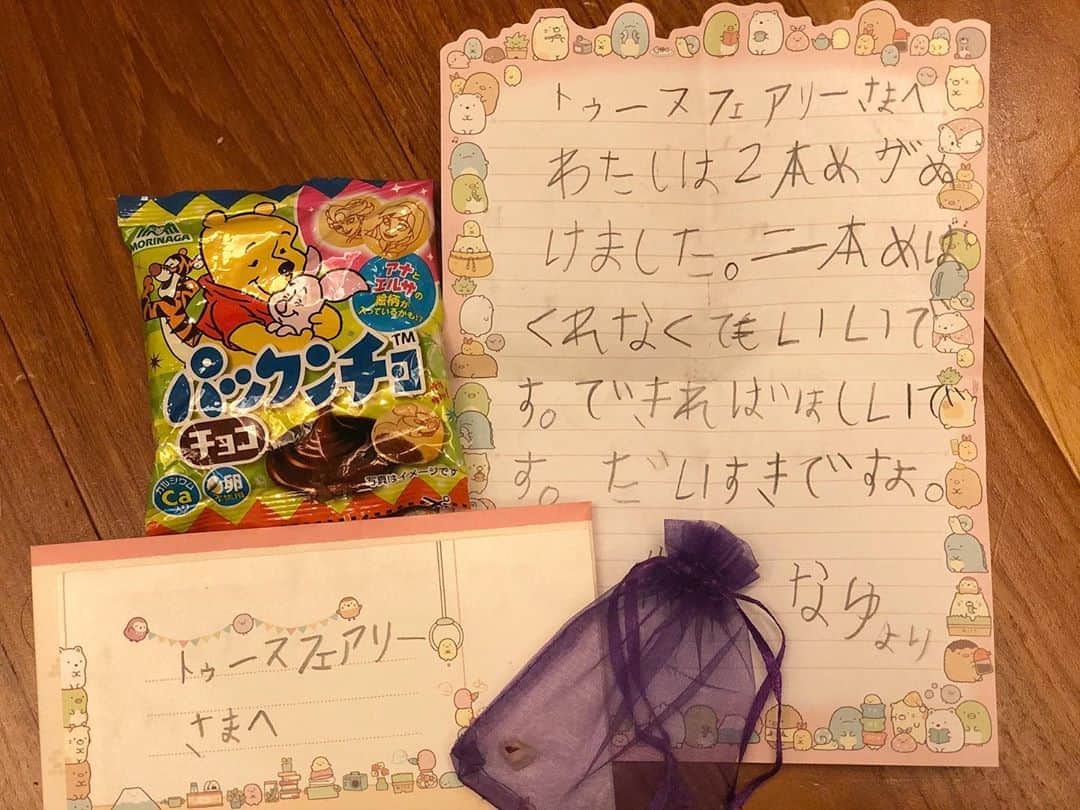 MORINAGA
アナと
エルサの
絵柄が
入っているかも!?
パックンチョ™
チョコ
カルシウム
Ca
入り
卵
写真はイメージです
トゥースフェアリーさまへ
わたしは2本めがぬ
けました。二本めは
くれなくてもいいで
す。できればほしいで
す。だいすきですよ。
なゆ
より
トゥースフェアリー
さまへ